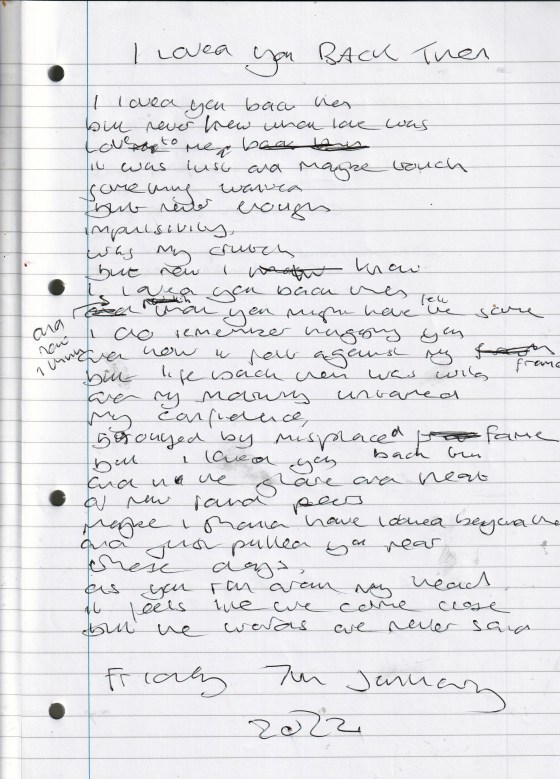 I Loved you BACK Then
I loved you back then
but never knew what love was
Love to me,
it was lust and maybe touch
something wanted
but never enough
impulsivity,
was my crutch
but now I know
I loved you back then
that you might have felt the same
and now I think
I do remember hugging you
and how it felt against my frame
but life back then was wild
and my maturity untamed
My confidence,
by misplaced fame
but I loved you back then
and in the glare and heat
of new found peers
maybe I should have looked beyond the
and just pulled you near
these days,
as you run around my head
it feels like we come close
but the words are never said
Friday 7th January
2022